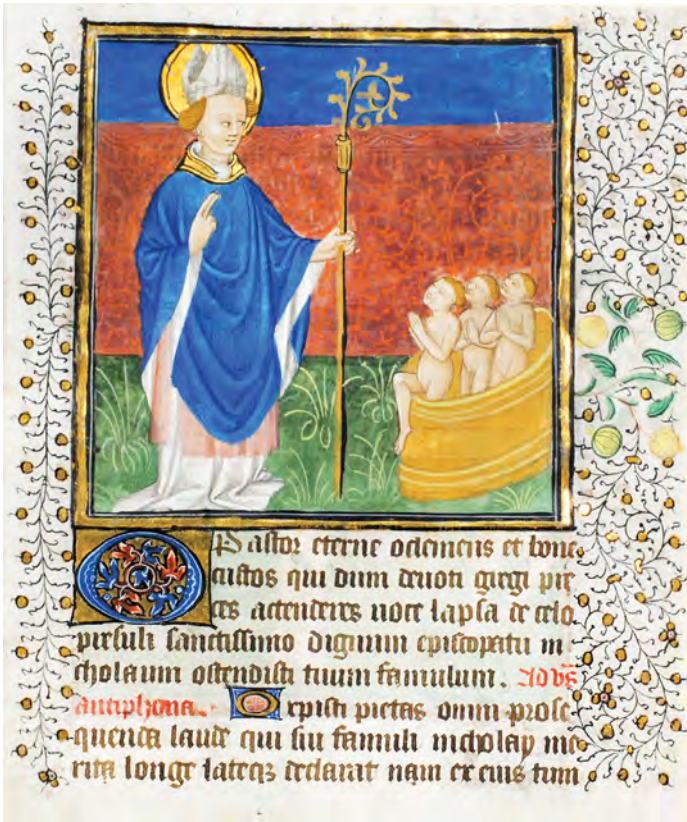 O Pastor eterne oclemens et bone
custos qui dum deuoti gregi pre
ces actenderes uoce lapsa de celo
presuli sanctissimo dignum episcopatu ni
cholaum ostendisti tuum famulum. Ad
antiphona. O xpisti pietas omni prose
quenda laude qui sui famuli nicholay me
rita longe lateqz declarat nam ex eius tum